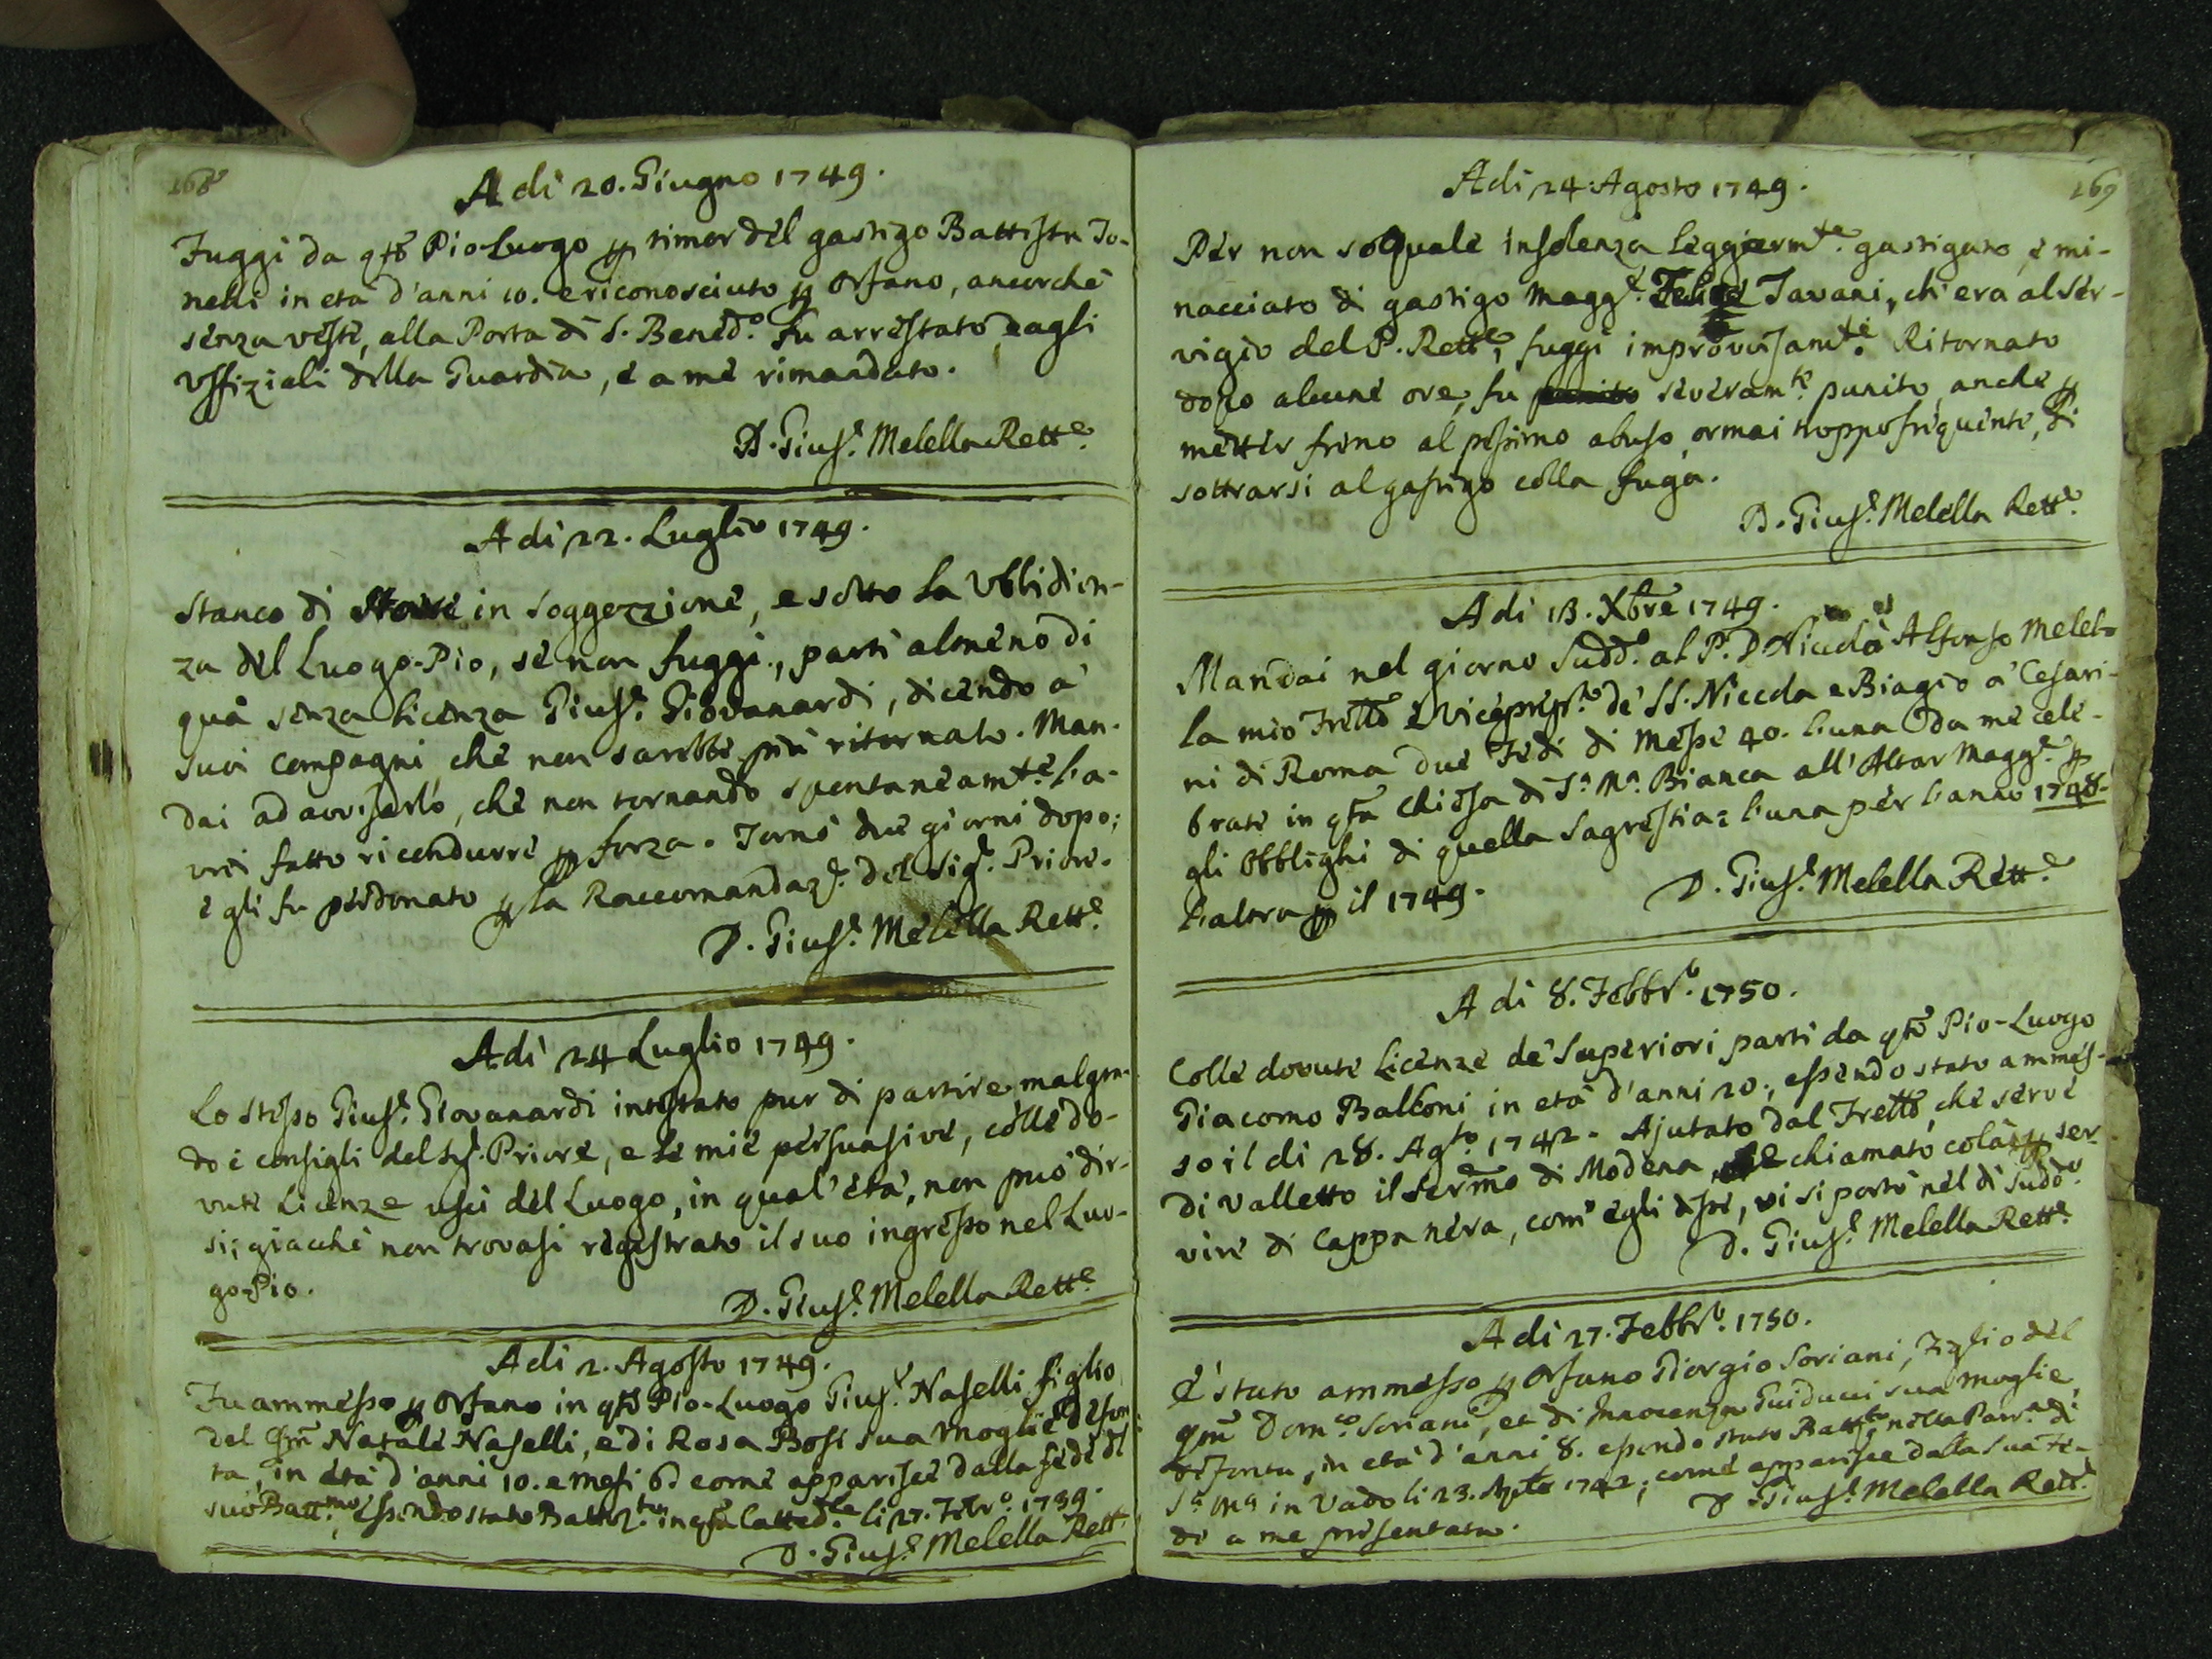 168
A di 20. Giugno 1749.
Fuggì da qsto Pio-Luogo p timor del gastigo Battista To-
nelli in età d'anni 10. e riconosciuto p Orfano, ancorchè
senza veste, alla Porta di S. Bened.o fu arrestato dagli
Uffiziali della Guardia, e a me rimandato.
D. Gius.e Melella Rett.e
A di 22. Luglio 1749.
Stanco di stare in soggezzione, e sotto la Ubbidien-
za del Luogo-Pio, se non fuggì, partì almeno di
quà senza licenza Gius.e Giovanardi, dicendo a'
suoi compagni, che non sarebbe più ritornato. Man-
dai ad avvisarlo, che non tornando spontaneamte l'a-
vrei fatto ricondurre p forza. Tornò due giorni dopo;
e gli fu perdonato p la Raccomandaz.e del Sig.r Priore.
D. Gius.e Melella Rett.e
A dì 24 Luglio 1749.
Lo stesso Gius.e Giovanardi intestato pur di partire, malgra-
do i consigli del Sig.r Priore, e le mie persuasive, colle do-
vute Licenze uscì del Luogo, in qual' età, non può dir-
si; giacchè non trovasi registrato il suo ingresso nel Luo-
go-Pio.
D. Gius.e Melella Rett.e
A di 2. Agosto 1749.
Fu ammesso p Orfano in qsto Pio-Luogo Gius.e Naselli figlio
del qm Natale Naselli, e di Rosa Bosi sua moglie defon-
ta, in età d'anni 10. e mesi 6 come apparisce dalla fede del
suo Batt.mo, essendo stato Battez.to in qsta Catted.le li 27. Febr.o 1739.
D. Gius.e Melella Rett.e
169
A di 24. Agosto 1749.
Per non so quale insolenza leggiermte gastigato, e mi-
nacciato di gastigo magg.e Felice Tavani, ch'era al ser-
vigio del P. Rett.e, fuggì improvisamte. Ritornato
dopo alcune ore, fu severamte punito, anche p
metter freno al pessimo abuso, ormai troppo frequente, di
sottrarsi al gastigo colla fuga.
D. Gius.e Melella Rett.e
A di 13. Xbre 1749.
Mandai nel giorno sudd.o al P. D. Niccolò Alfonso Melel-
la mio Frello e Vicepreposto de' SS. Niccola e Biagio a' Cesari-
ni di Roma due Fedi di Messe 40. l'una da me cele-
brate in qsta Chiesa di S.a M.a Bianca all'Altar Magg.e p
gli Obblighi di quella Sagrestia: l'una per l'anno 1748.
l'altra p il 1749.
D. Gius.e Melella Rett.e
A di 8. Febbr.o 1750.
Colle dovute licenze de' Superiori partì da qsto Pio-Luogo
Giacomo Balboni in età d'anni 20., essendo stato ammes-
so il dì 28. Ag.to 1742. Ajutato dal Frello, che serve
di Valletto il Sermo di Modena, chiamato colà p ser-
vire di Cappa nera, com' egli disse, vi si portò nel dì sudd.o
D. Gius.e Melella Rett.e
A di 27. Febbr.o 1750.
È stato ammesso p Orfano Giorgio Soriani, Figlio del
qm Dom.co Soriani, et di Innocenza Guiducci sua moglie
defonta, in età d'anni 8. essendo stato Batt.to nella Parr.a di
S.a M.a in Vado li 23. Aprile 1742; come apparisce dalla sua Fe-
de a me presentata.
D. Gius.e Melella Rett.e